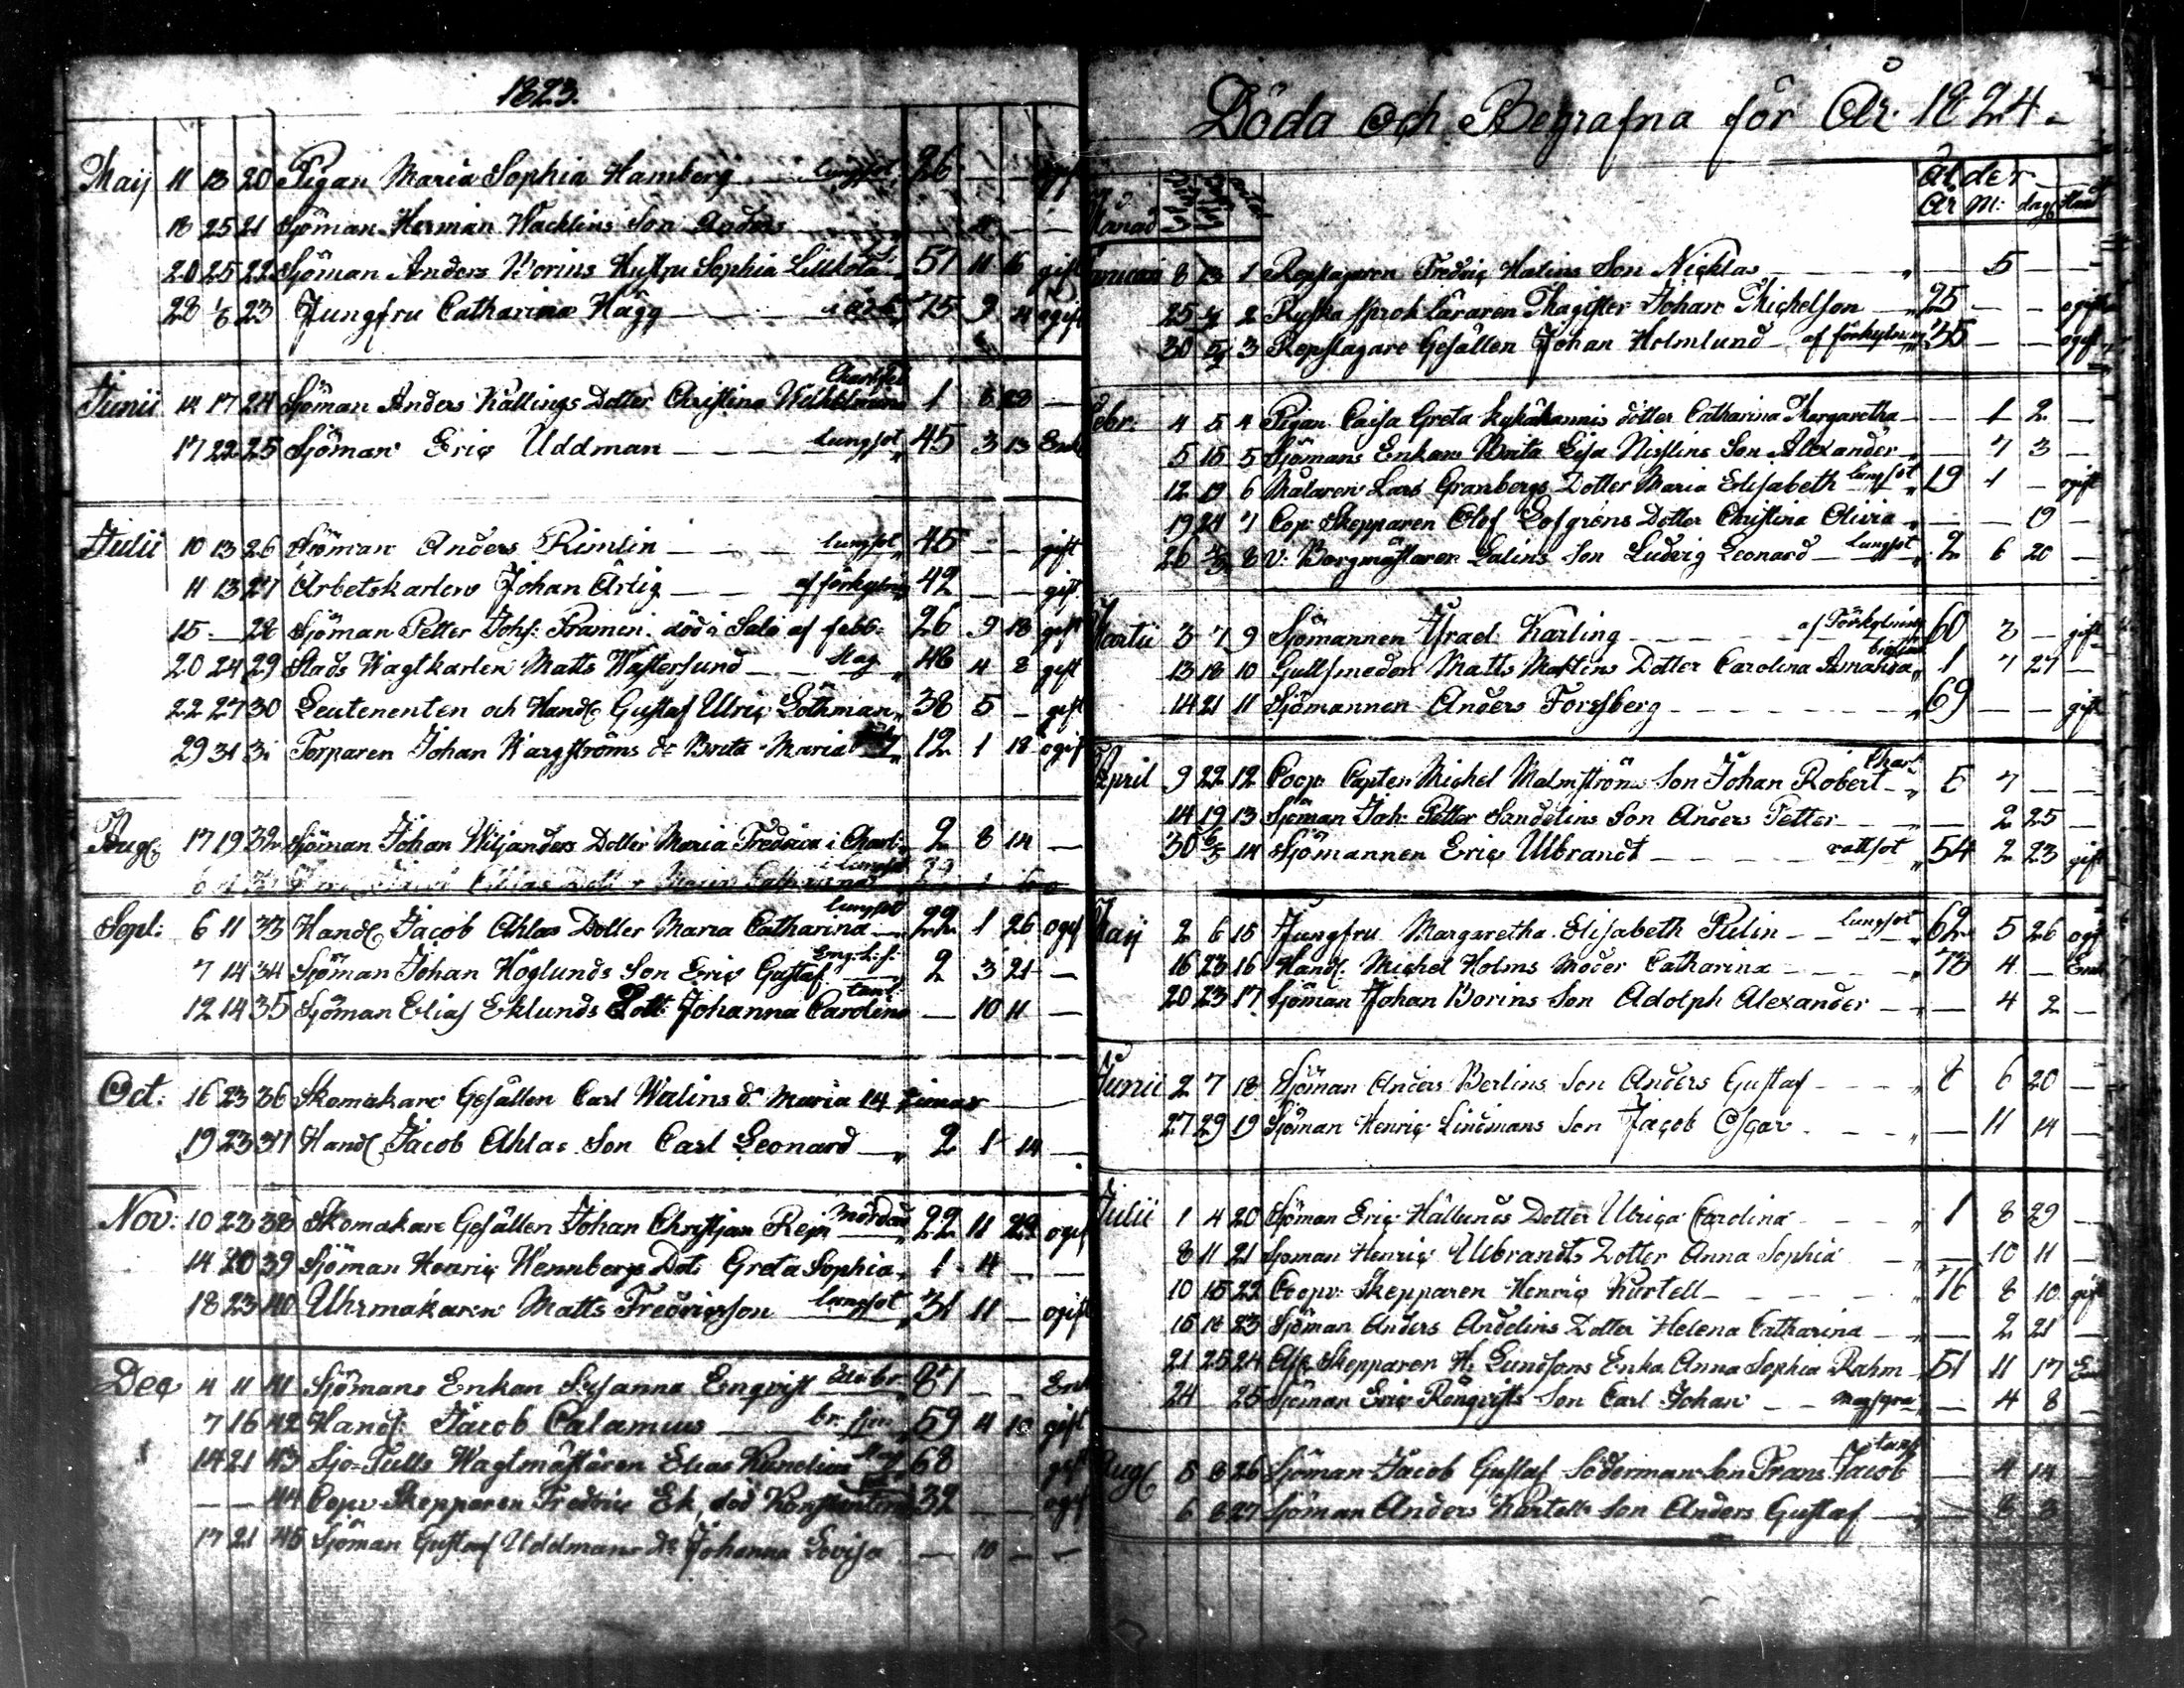 1823.
Maij 11 13 20 Pigan Maria Sophia Hamberg lungsot 26
18 25 21 Sjöman Herman Wacklins Son Anders
20 25 22 Sjöman Anders Borins Hustru Sophia 57 11 16 gift
28 23 Jungfru Catharina Hägg 75 9 ogift
Junii 14 17 24 Sjöman Anders Källings Dotter Christina Wilhelmina 1 8 23 —
17 22 25 Sjöman Eric Uddman lungsot 45 3 13
Julii 10 13 26 Sjöman Anders Rimlin lungsot 45 — — gift
11 13 27 Arbetskarlen Johan Ärlig af förkyln 42 — — gift
15 — 28 Sjöman Petter Johs: Framin. död i Salo af febb: 26 9 18 gift
20 24 29 Stads Wagtkarlen Matts Wästersund slag 48 4 8 gift
22 27 30 Leutenenten och Handl Gustaf Ulric Löthman 38 5 — gift
29 31 31 Torparen Johan Wargströms dr Brita Maria 12 1 18 ogift
Aug 17 19 32 Sjöman Johan Wiljanders Dotter Maria Fredrica i Charl: 2 8 14 —
Sept: 6 11 33 Handl Jacob Ahlas Dotter Maria Catharina lungsot 22 1 26 ogif
7 14 34 Sjöman Johan Höglunds Son Eric Gustaf Eng: s: 2 3 21 —
12 14 35 Sjöman Elias Eklunds Dott: Johanna Carolina — 10 11 —
Oct: 16 23 36 Skomakare Gesällen Carl Walins d: Maria 14 timar
19 23 37 Handl Jacob Ahlas Son Carl Leonard 2 1 14 —
Nov: 10 23 38 Skomakare Gesällen Johan Christjan Rejn mördad 22 11 22 ogif
14 20 39 Sjöman Henric Wennbergs Dot: Greta Sophia 1 4 — —
18 23 40 Uhrmakaren Matts Fredricsson lungsot 31 11 — ogift
Dec 4 11 41 Sjömans Enkan Susanna Enqvist 81 — — Enk
7 16 42 Handl: Jacob Calamnius br: 59 4 10 gift
14 21 43 Sjö-Tulls Wagtmästaren Elias 68 gift
— — 44 Coopv Skepparen Fredric Ek, död 32 ogif
17 21 45 Sjöman Gustaf Uddmans dr Johanna Lovisa — 10 — —
Döda och Begrafna för År 1824.
Månad
Ålder
År M: dag Stånd
Januari 8 13 1 Repslagaren Fredric Halins Son Nicklas — 5 — —
25 2 Ryska språk läraren Magister Johan Michelson 25 — — ogift
30 3 Repslagare Gesällen Johan Holmlund af förkyln 35 — — ogift
Febr: 4 5 4 Pigan Caisa Greta dotter Catharina Margaretha — 1 2 —
5 15 5 Sjömans Enkans Brita Lisa Nisslins Son Alexander — 7 3 —
12 19 6 Målaren Lars Granbergs Dotter Maria Elisabeth lungsot 19 1 — ogift
19 24 7 Cop: Skepparen Olof Lofgrens Dotter Christina Olivia — — 19 —
26 8 V: Borgmästaren Dalins Son Ludvig Leonard Lungsot 2 6 20 —
Martii 3 7 9 Sjömannen Israel Karling af Förkylning 60 3 — gift
13 18 10 Gullsmeden Matts Matlins Dotter Carolina Amanda 1 7 27 —
14 21 11 Sjömannen Anders Forssberg 69 — — gift
April 9 22 12 Coop Capten Michel Malmströms Son Johan Robert Charl: 5 7 — —
14 19 13 Sjöman Joh: Petter Sandelins Son Anders Petter — 2 25 —
30 6/5 14 Sjömannen Eric Ulbrandt rötsot 54 2 23 gift
Maij 2 6 15 Jungfru Margaretha Elisabeth Pulin lungsot 62 5 26 ogif
16 23 16 Handl: Michel Holms Moder Catharina 73 4 — Enk
20 23 17 Sjöman Johan Borins Son Adolph Alexander — 4 2 —
Junii 2 7 18 Sjöman Anders Berlins Son Anders Gustaf 6 20 —
27 29 19 Sjöman Henric Lindmans Son Jacob Oscar — 11 14 —
Julii 1 4 20 Sjöman Eric Hällunds Dotter Ulrica Carolina 1 8 29 —
8 11 21 Sjöman Henric Ulbrandts Dotter Anna Sophia — 10 11 —
10 15 22 Coopv: Skepparen Henric Kurtell 76 8 10 gift
15 18 23 Sjöman Anders Andelins Dotter Helena Catharina — 2 21 —
21 25 24 Skepparen H: Lundsons Enka Anna Sophia Rahm 51 11 17 Enk
24 25 Sjöman Eric Rönqvists Son Carl Johan — 4 8 —
Aug 5 8 26 Sjöman Jacob Gustaf Södermans Son Frans Jacob — 4 14 —
6 8 27 Sjöman Anders Kurtells Son Anders Gustaf — 8 3